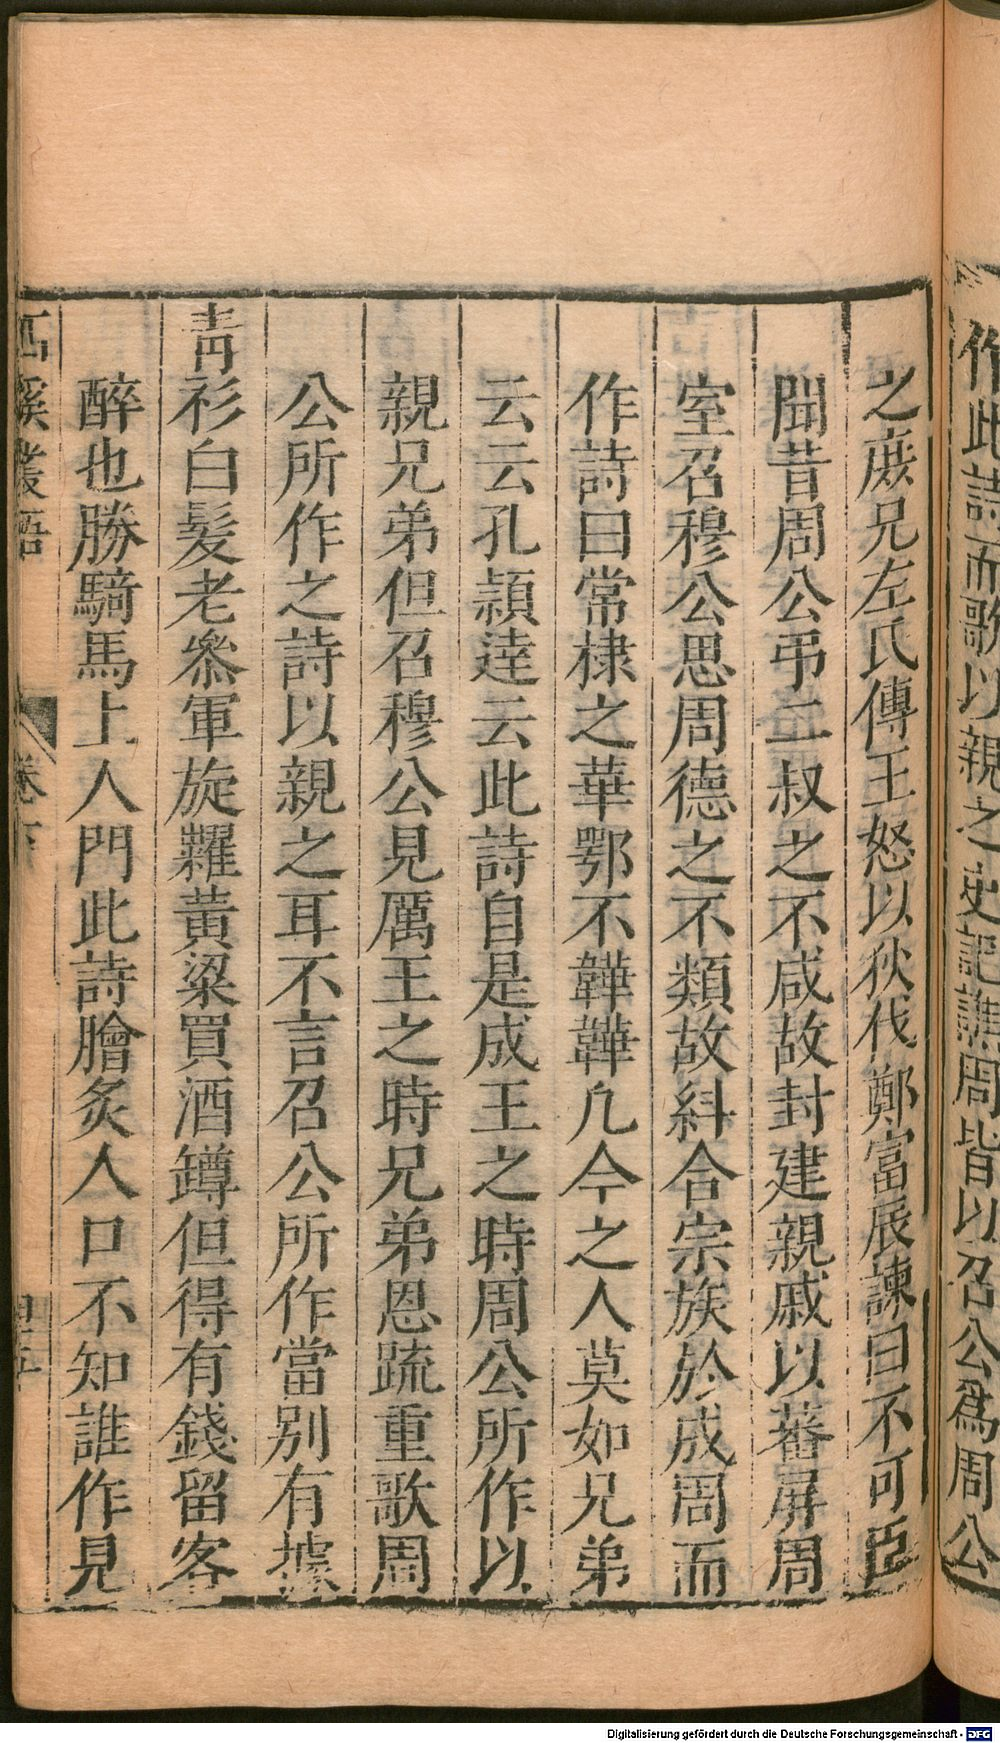 作此詩而歌以親之史記譙周皆以召公爲周公
之庶兄左氏傳王怒以狄伐鄭富辰諫曰不可臣
聞昔周公弔二叔之不咸故封建親戚以蕃屏周
室召穆公思周德之不類故糾合宗族於成周而
作詩曰常棣之華鄂不韡韡凢今之人莫如兄弟
云云孔頴逹云此詩自是成王之時周公所作以
親兄弟但召穆公見厲王之時兄弟恩䟽重歌周
公所作之詩以親之耳不言召公所作當别有據
青衫白髮老叅軍旋糶黃粱買酒罇但得有錢留客
醉也勝騎馬上人門此詩膾炙人口不知誰作見
西溪叢語 卷下 四十五
Digitalisierung gefördert durch die Deutsche Forschungsgemeinschaft - DFG